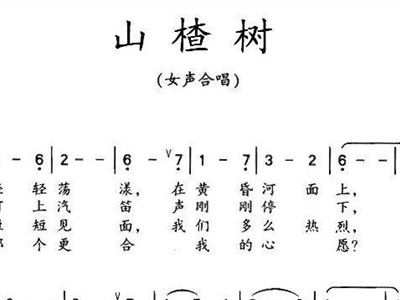 山楂树
(女声合唱)
6 | 2 - - | 6 - 7 | 1 - 7 | 3 - 2 | 6 - -
轻荡漾，在黄昏河面上，
上汽笛声刚刚停下，
短见面，我们多么热烈，
个更合我的心愿？